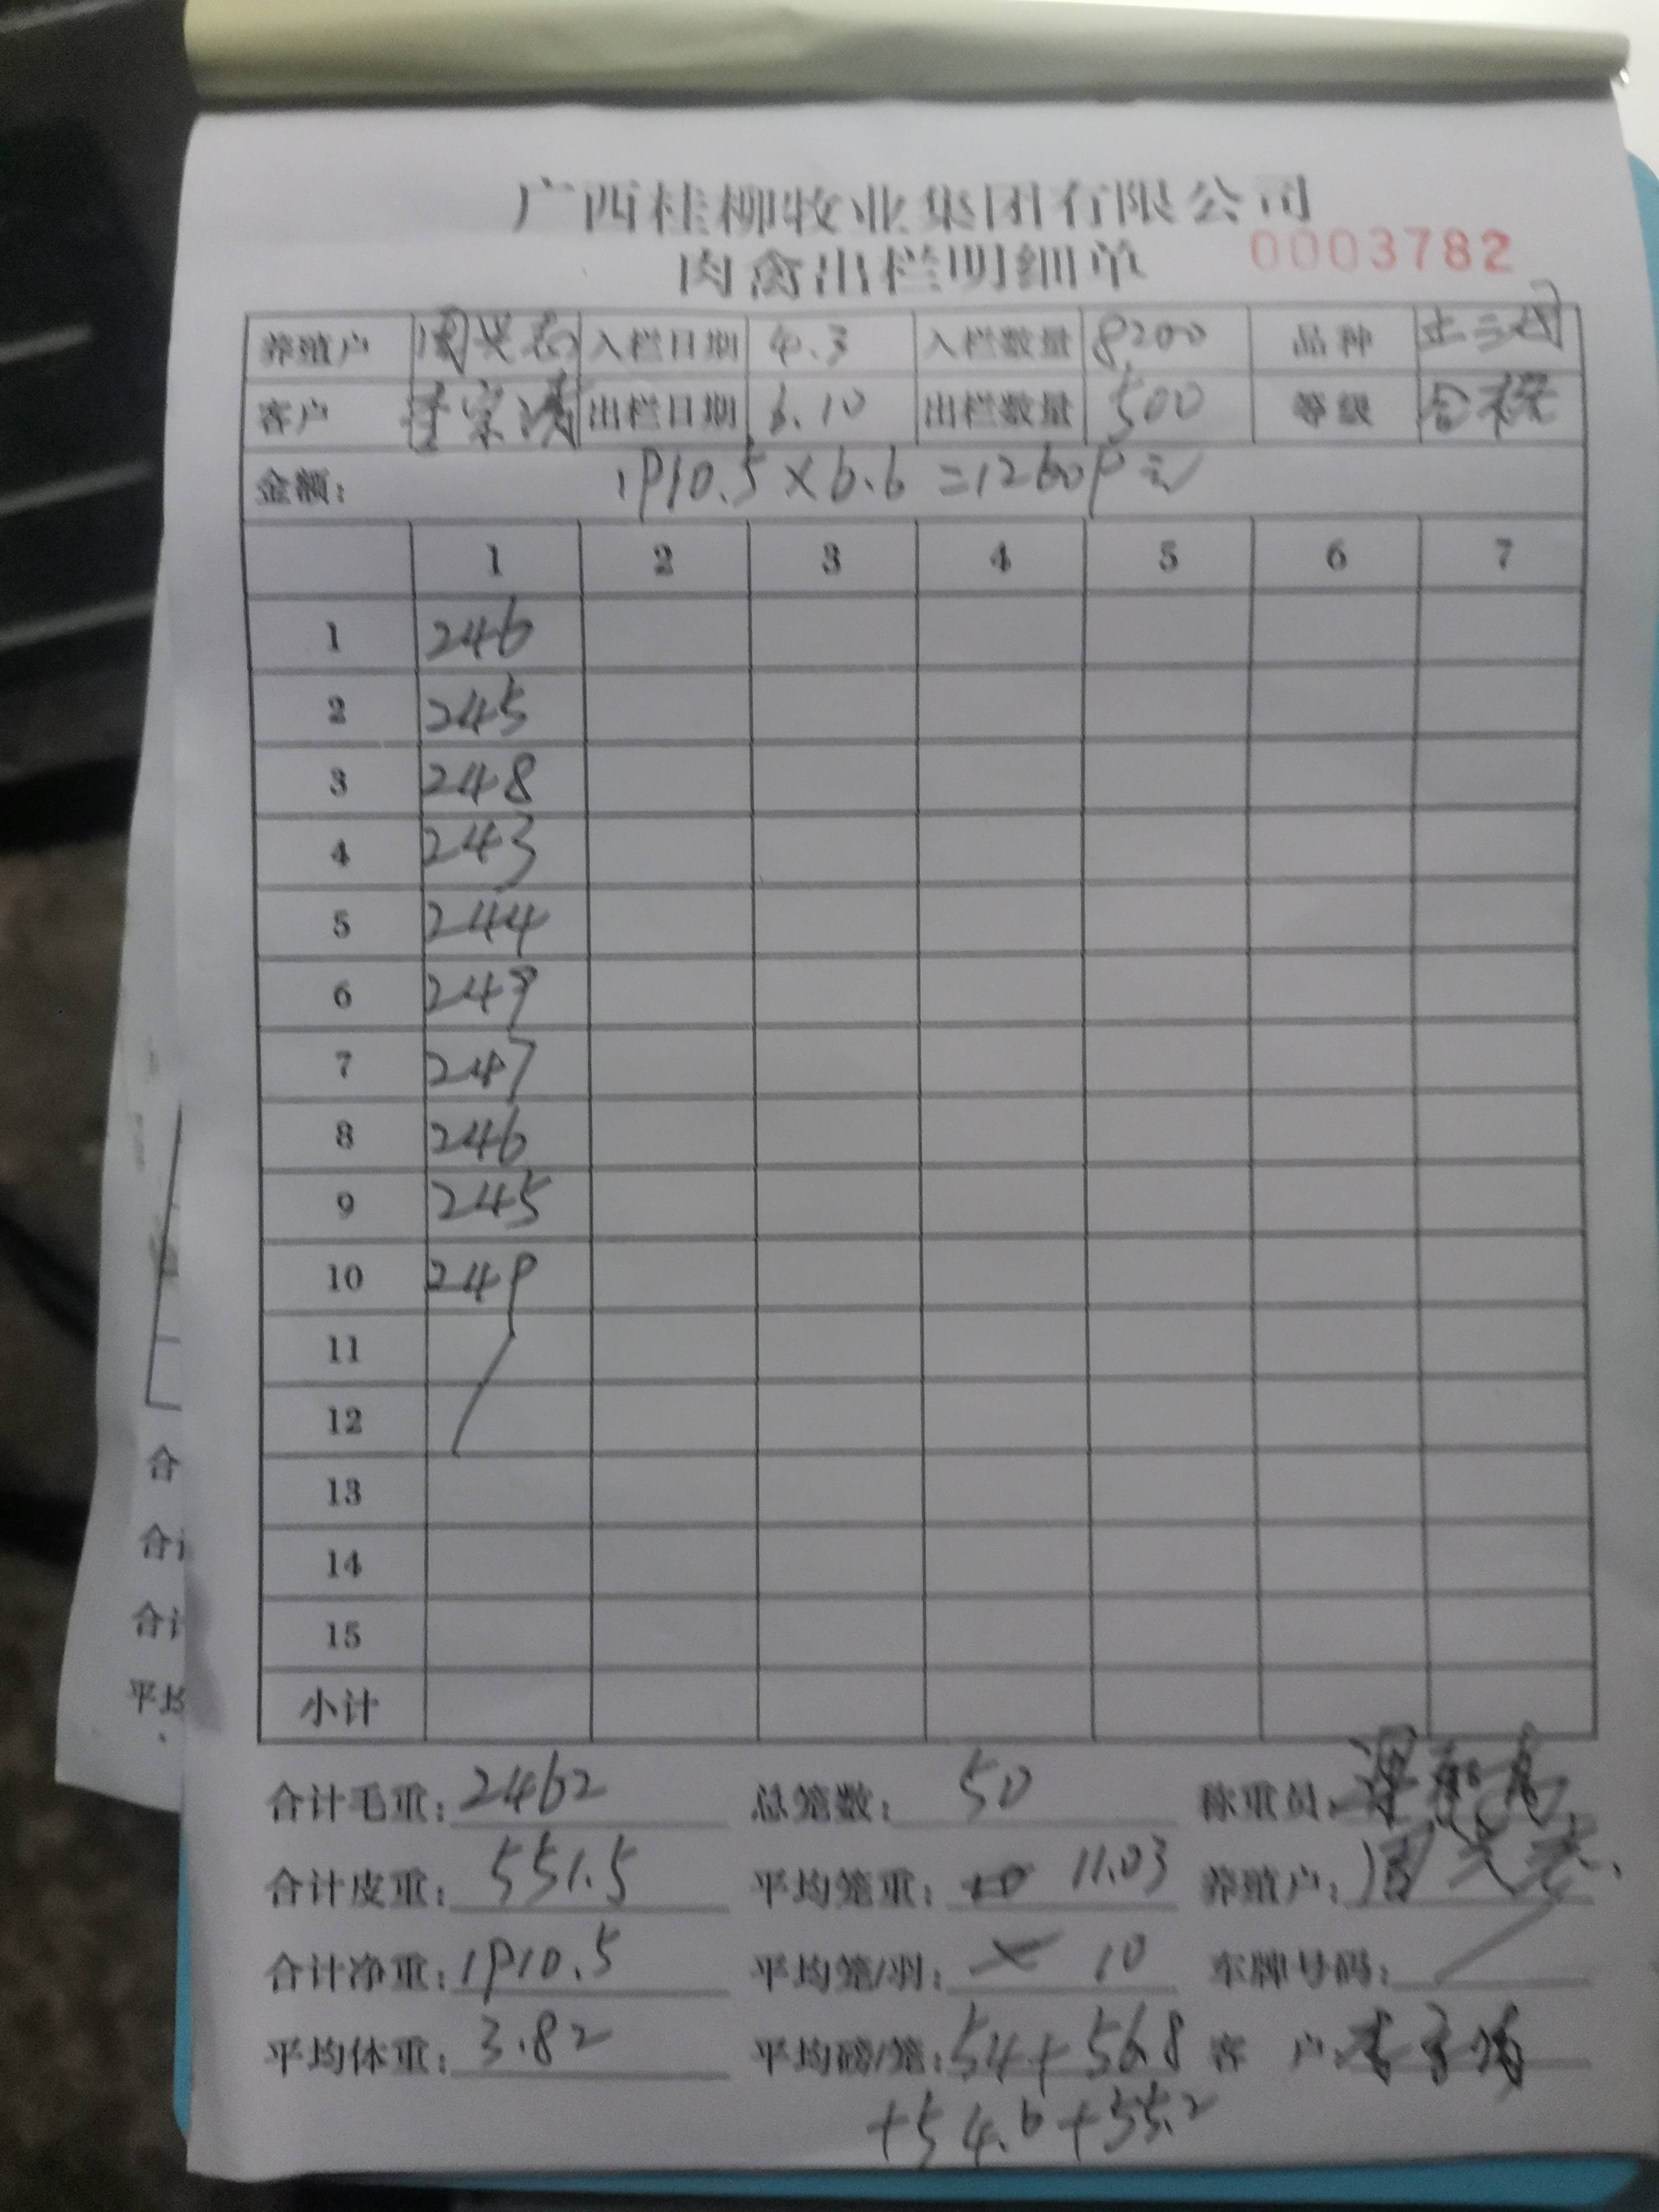 广西桂柳牧业集团有限公司
肉禽出栏明细单 0003782
养殖户 入栏日期 4.3 入栏数量 8200 品种
客户 李宗 出栏日期 6.10 出栏数量 500 等级 合格
金额: 1910.5×6.6=12609元
1 2 3 4 5 6 7
1 246
2 245
3 248
4 243
5 244
6 249
7 247
8 246
9 245
10 249
11
12
13
14
15
小计
合计毛重: 2462 总笼数: 50 称重员:
合计皮重: 551.5 平均笼重: 11.03 养殖户:
合计净重: 1910.5 平均笼/羽: 10 车牌号码:
平均体重: 3.82 平均磅/笼: 54+56.8 客 户:
+54.6+55.2
合
合计
合计
平均